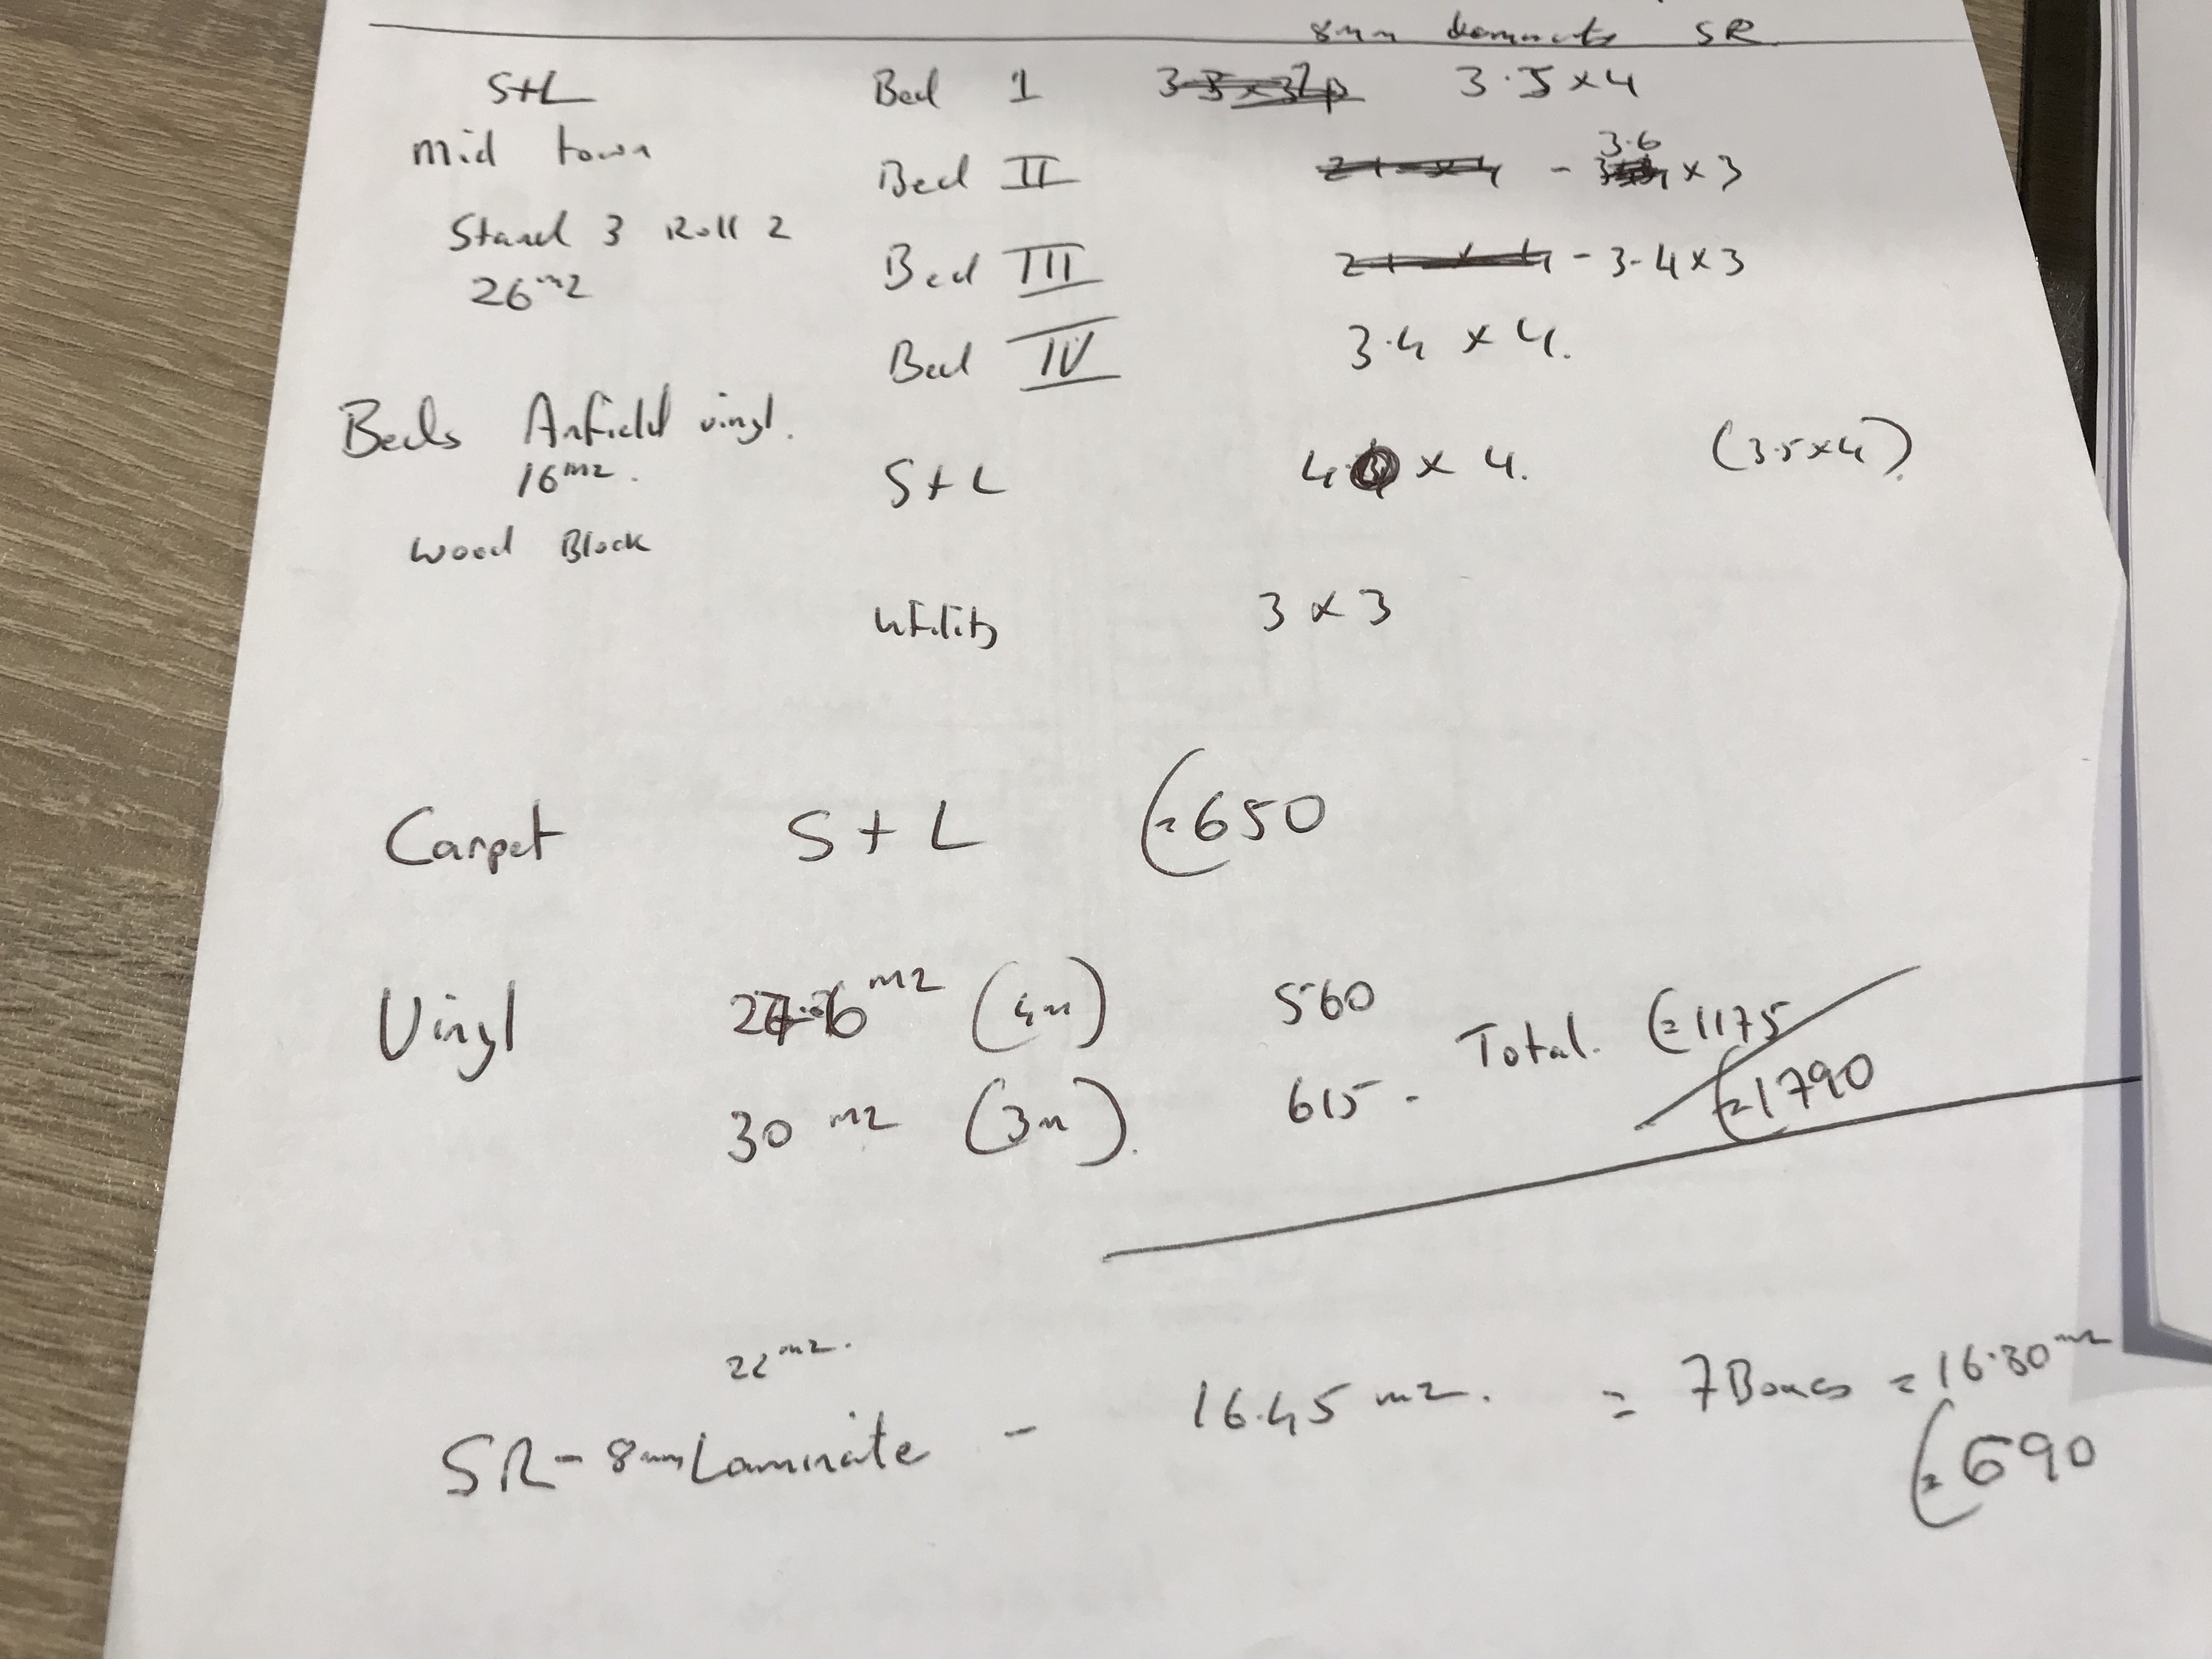 8mm Laminate SR
S+L Bed 1 3.5 x 4
Mid town
Bed II - 3.6 x 3
Stand 3 Roll 2
Bed III - 3.4 x 3
26m2
Bed IV 3.4 x 4.
Beds Anfield vinyl.
16m2.
S+L 4. x 4. (3.5 x 4).
Wood Block
Utility 3 x 3
Carpet S+L €650
Vinyl m2 (4m) 560
Total. €1175
€1790
30 m2 (3m). 615 -
22m2.
SR - 8mm Laminate - 16.45 m2. = 7 Boxes = 16.30m2
€690